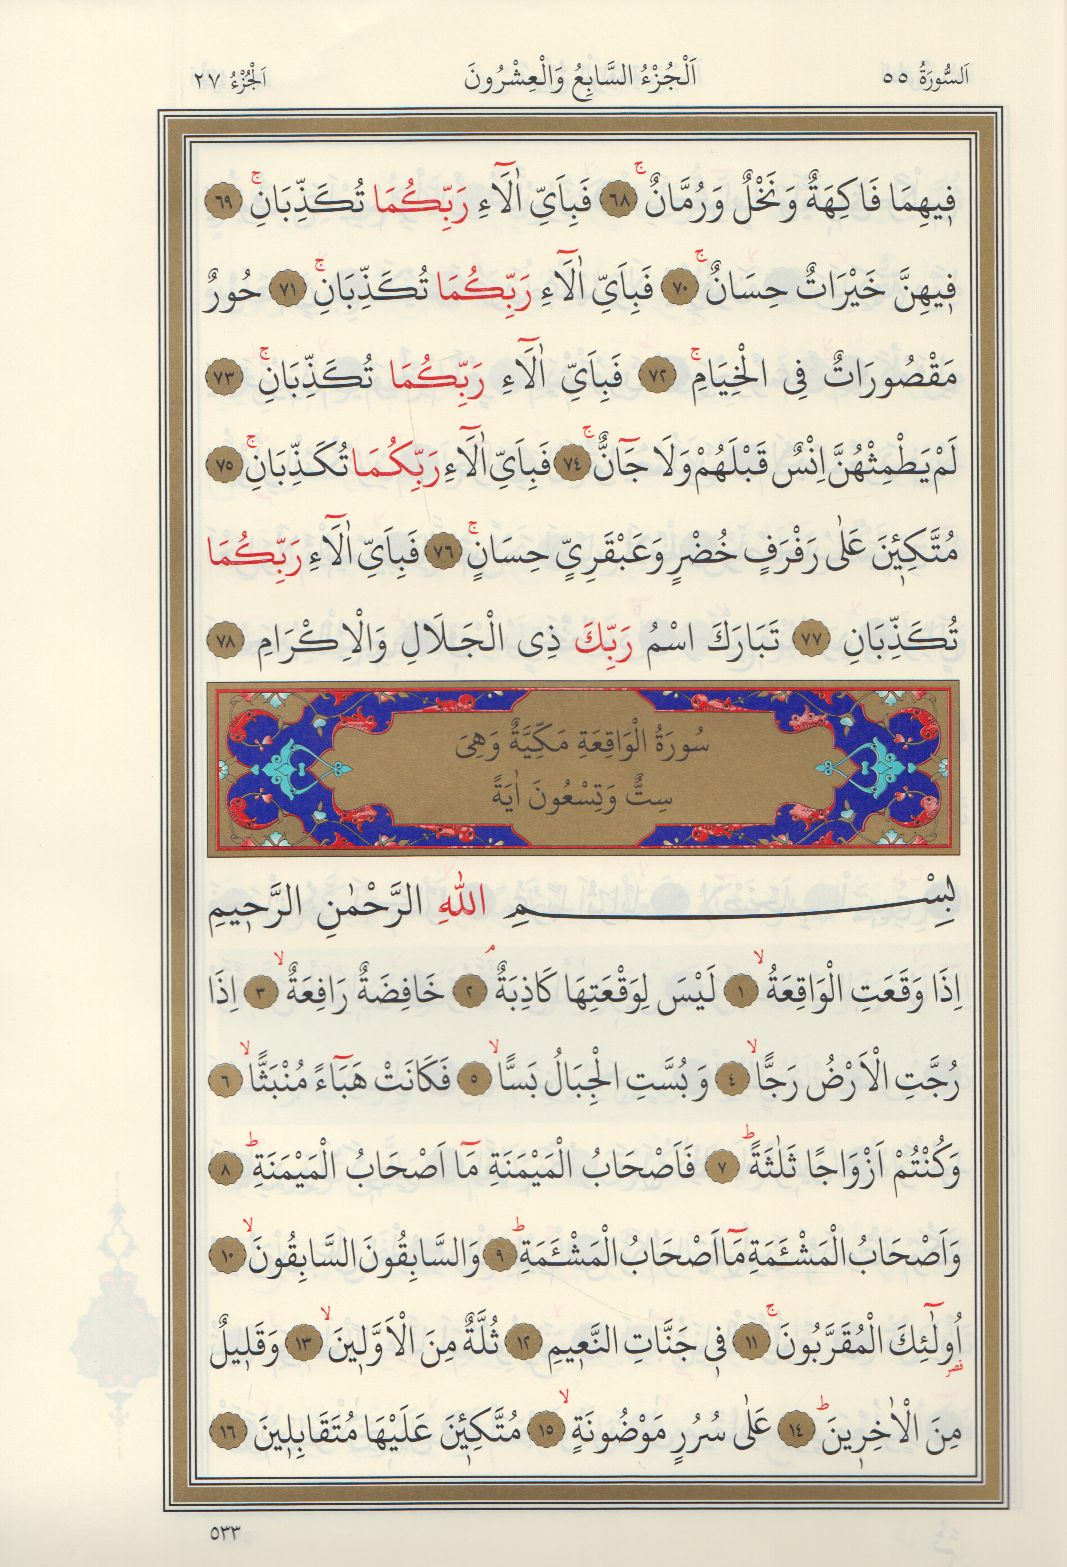 اَلسُّورَةُ ٥٥ اَلْجُزْءُ السَّابِعُ وَالْعِشْرُونَ اَلْجُزْءُ ٢٧
فٖيهِمَا فَاكِهَةٌ وَنَخْلٌ وَرُمَّانٌۚ ٦٨ فَبِاَيِّ اٰلَٓاءِ رَبِّكُمَا تُكَذِّبَانِۚ ٦٩
فٖيهِنَّ خَيْرَاتٌ حِسَانٌۚ ٧٠ فَبِاَيِّ اٰلَٓاءِ رَبِّكُمَا تُكَذِّبَانِۚ ٧١ حُورٌ
مَقْصُورَاتٌ فِى الْخِيَامِۚ ٧٢ فَبِاَيِّ اٰلَٓاءِ رَبِّكُمَا تُكَذِّبَانِۚ ٧٣
لَمْ يَطْمِثْهُنَّ اِنْسٌ قَبْلَهُمْ وَلَا جَٓانٌّۚ ٧٤ فَبِاَيِّ اٰلَٓاءِ رَبِّكُمَا تُكَذِّبَانِۚ ٧٥
مُتَّكِـٖٔينَ عَلٰى رَفْرَفٍ خُضْرٍ وَعَبْقَرِيٍّ حِسَانٍۚ ٧٦ فَبِاَيِّ اٰلَٓاءِ رَبِّكُمَا
تُكَذِّبَانِ ٧٧ تَبَارَكَ اسْمُ رَبِّكَ ذِى الْجَلَالِ وَالْاِكْرَامِ ٧٨
سُورَةُ الْوَاقِعَةِ مَكِّيَّةٌ وَهِىَ
سِتٌّ وَتِسْعُونَ اٰيَةً
بِسْمِ اللّٰهِ الرَّحْمٰنِ الرَّحٖيمِ
اِذَا وَقَعَتِ الْوَاقِعَةُۙ ١ لَيْسَ لِوَقْعَتِهَا كَاذِبَةٌۢ ٢ خَافِضَةٌ رَافِعَةٌۙ ٣ اِذَا
رُجَّتِ الْاَرْضُ رَجًّاۙ ٤ وَبُسَّتِ الْجِبَالُ بَسًّاۙ ٥ فَكَانَتْ هَبَٓاءً مُنْبَثًّاۙ ٦
وَكُنْتُمْ اَزْوَاجًا ثَلٰثَةًؕ ٧ فَاَصْحَابُ الْمَيْمَنَةِ مَٓا اَصْحَابُ الْمَيْمَنَةِؕ ٨
وَاَصْحَابُ الْمَشْـَٔمَةِ مَٓا اَصْحَابُ الْمَشْـَٔمَةِؕ ٩ وَالسَّابِقُونَ السَّابِقُونَۙ ١٠
اُو۬لٰٓئِكَ الْمُقَرَّبُونَۚ ١١ فٖى جَنَّاتِ النَّعٖيمِ ١٢ ثُلَّةٌ مِنَ الْاَوَّلٖينَۙ ١٣ وَقَلٖيلٌ
مِنَ الْاٰخِرٖينَؕ ١٤ عَلٰى سُرُرٍ مَوْضُونَةٍۙ ١٥ مُتَّكِـٖٔينَ عَلَيْهَا مُتَقَابِلٖينَ ١٦
٥٣٣